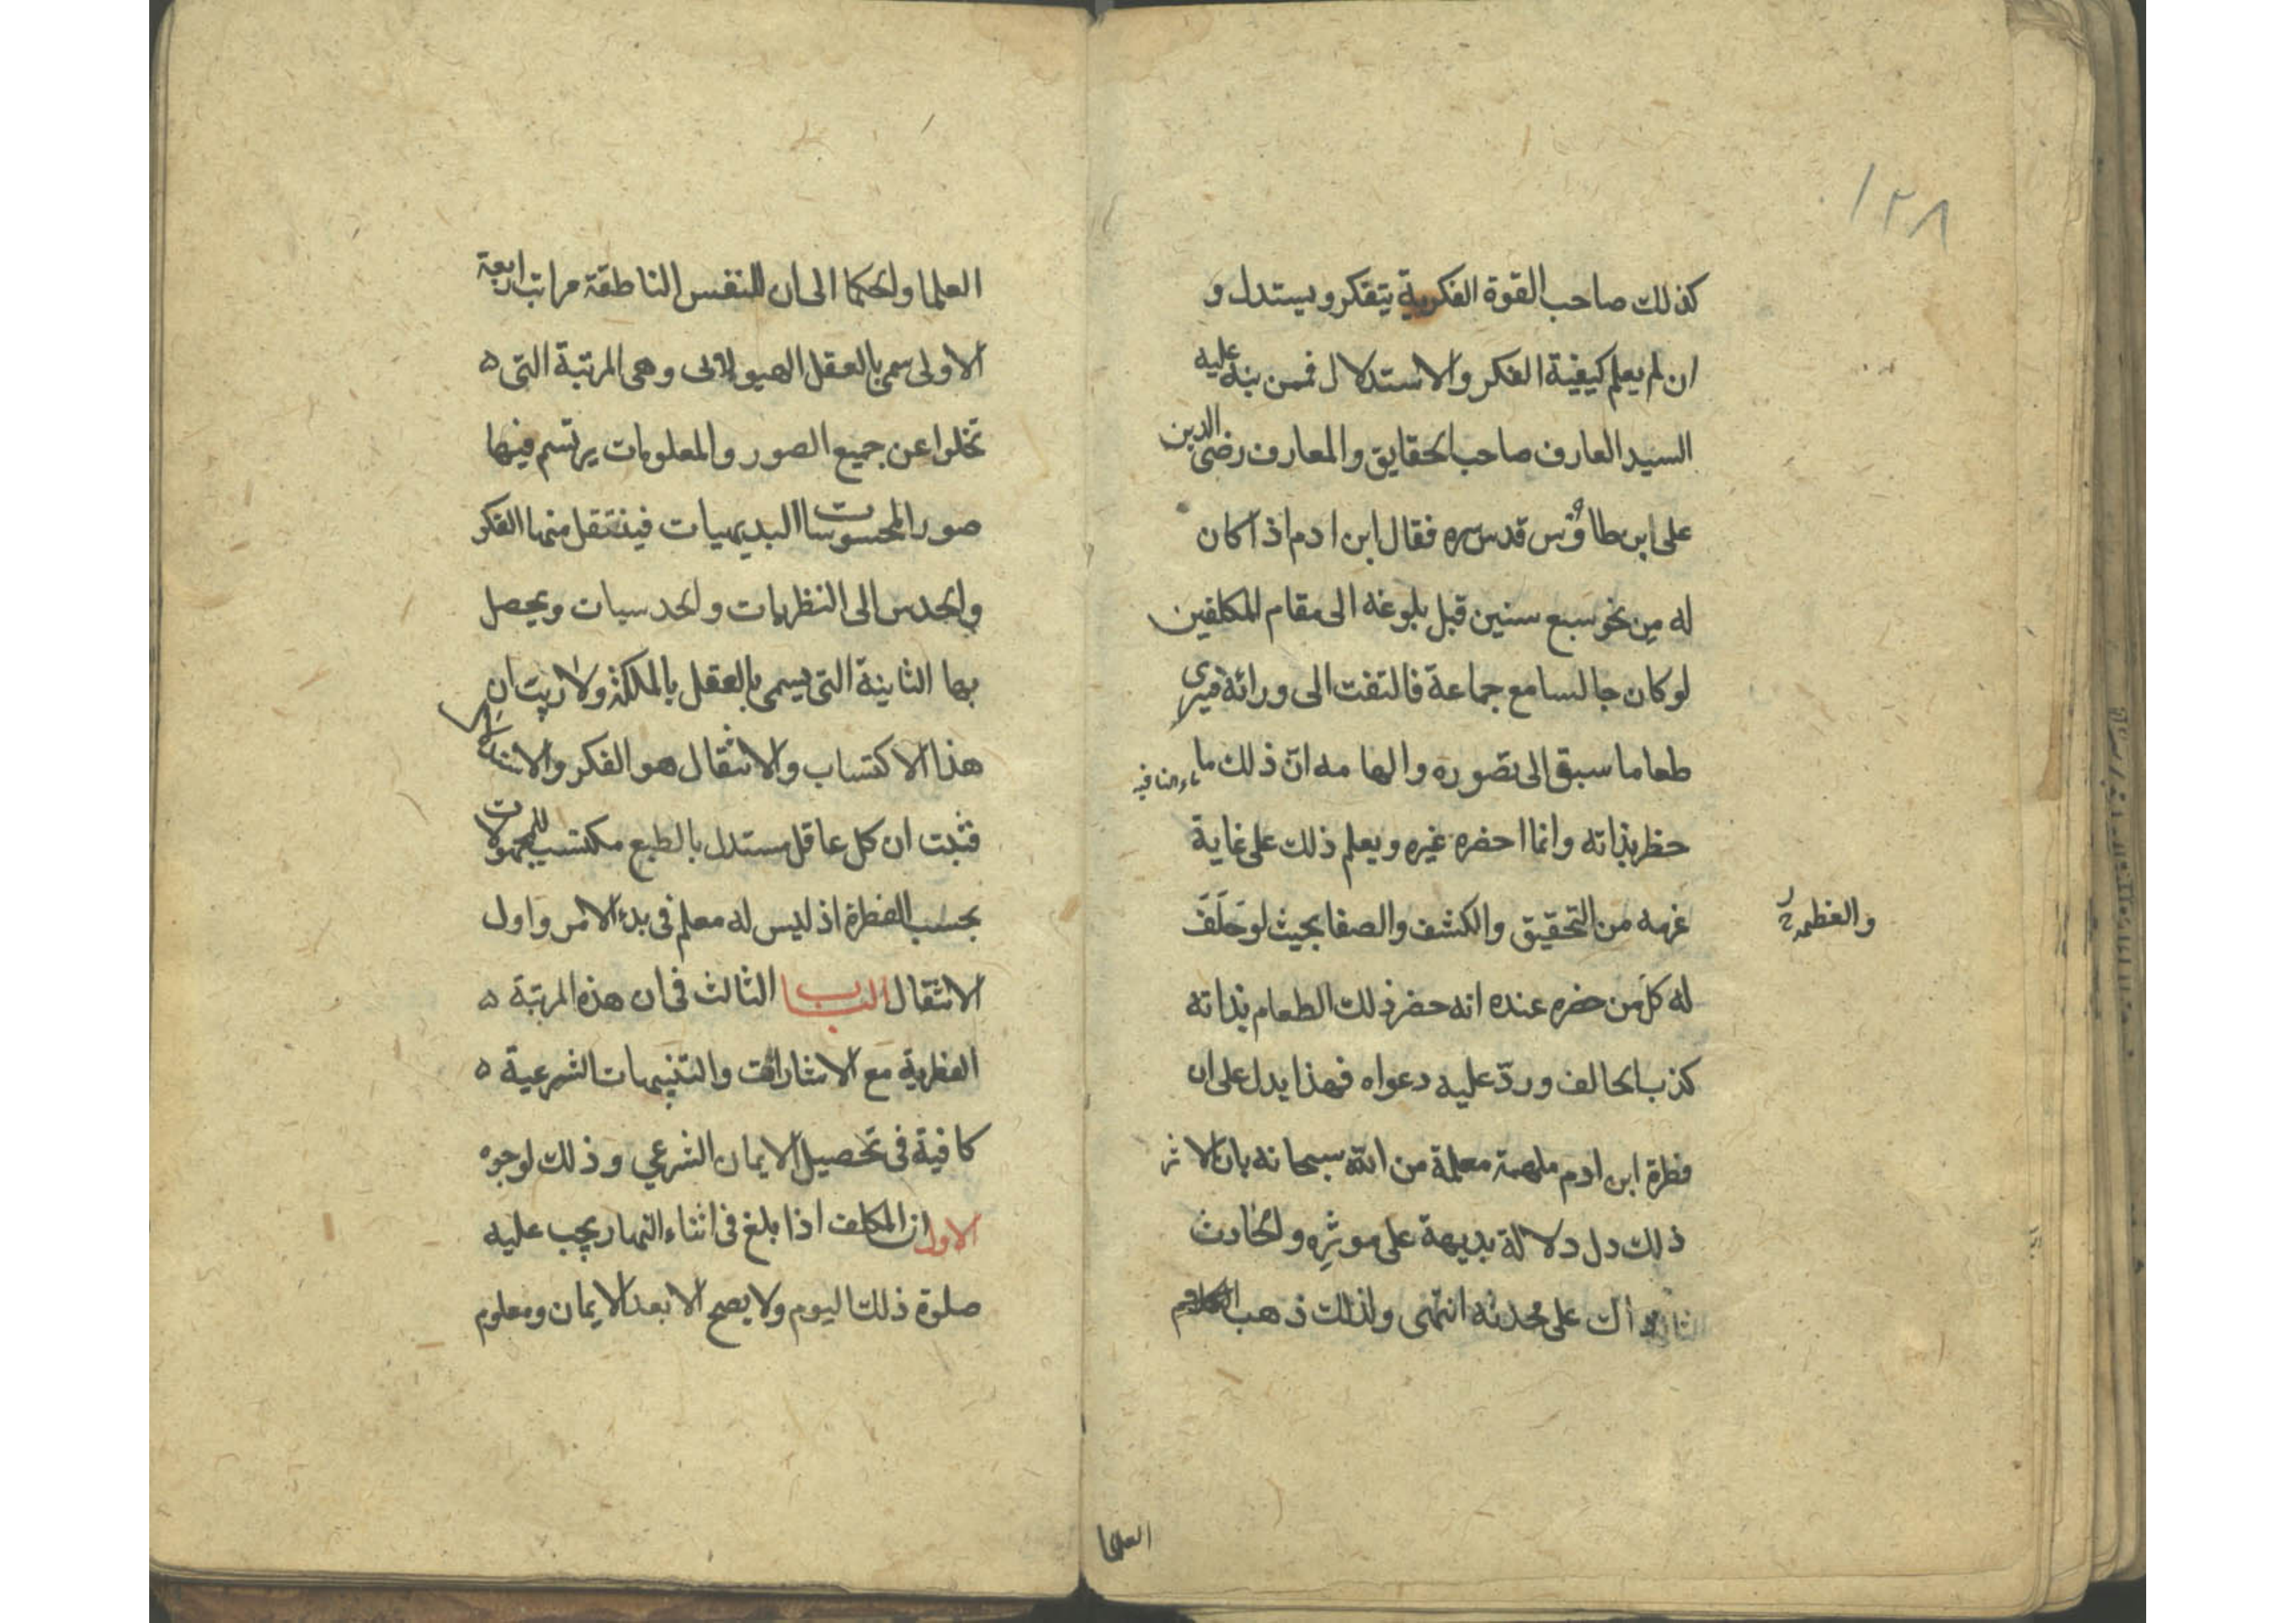 ١٢٨
كذلك صاحب القوة الفكرية يتفكر ويستدل و
ان لم يعلم كيفية الفكر والاستدلال فممن نبه عليه
السيد العارف صاحب الحقايق والمعارف رضى الدين
على ابن طاوس قدس سره فقال ابن ادم اذا كان
له من نحو سبع سنين قبل بلوغه الى مقام المكلفين
لو كان جالسا مع جماعة فالتفت الى ورائه فيرى
طعاما سبق الى تصوره والهامه انّ ذلك ما
حظر بذاته وانما احضره غيره ويعلم ذلك على غاية
غرمه من التحقيق والكشف والصفا بحيث لو حَلَفَ
له كل من حضره عنده انه حضر ذلك الطعام بذاته
كذب الحالف وردّ عليه دعواه فهذا يدل على ان
فطرة ابن ادم ملهمة معلمة من الله سبحانه بان الاثر
ذلك دل دلالة بديهة على موثرِه والحادث
على محدثه انتهى ولذلك ذهب
العلما
العلما والحكما الى ان للنفس الناطقة مراتب اربعة
الاولى سمى بالعقل الهيولانى وهى المرتبة التى ه
تخلوا عن جميع الصور والمعلومات يرتسم فيها
صور المحسوسات البديهيات فينتقل منها الفكر
والحدس الى النظريات والحدسيات ويحصل
بها الثانية التى يسمى بالعقل بالملكة ولا ريب ان
هذا الاكتساب والانتقال هو الفكر والاستدلال
فثبت ان كل عاقل مستدل بالطبع مكتسب للمجهولات
بحسب الفطرة اذ ليس له معلم فى بدء الامر واول
الانتقال الباب الثالث فى ان هذه المرتبة ه
الفطرية مع الاشارات والتنبيهات الشرعية ه
كافية فى تحصيل الايمان الشرعي وذلك لوجوه
الاول ان المكلف اذا بلغ فى اثناء النهار يجب عليه
صلوة ذلك اليوم ولا يصح الا بعد الايمان ومعلوم